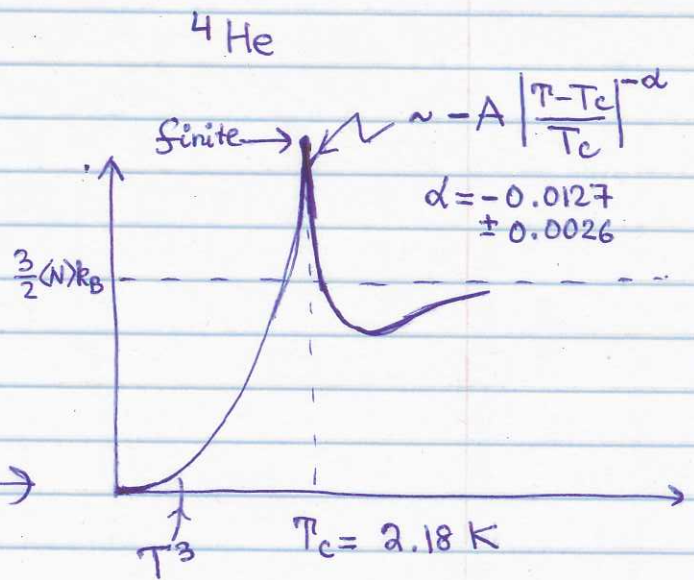 ⁴He
finite→
~ -A |T-Tc/Tc|^-α
α = -0.0127
± 0.0026
3/2 ⟨N⟩k_B
T³
Tc = 2.18 K